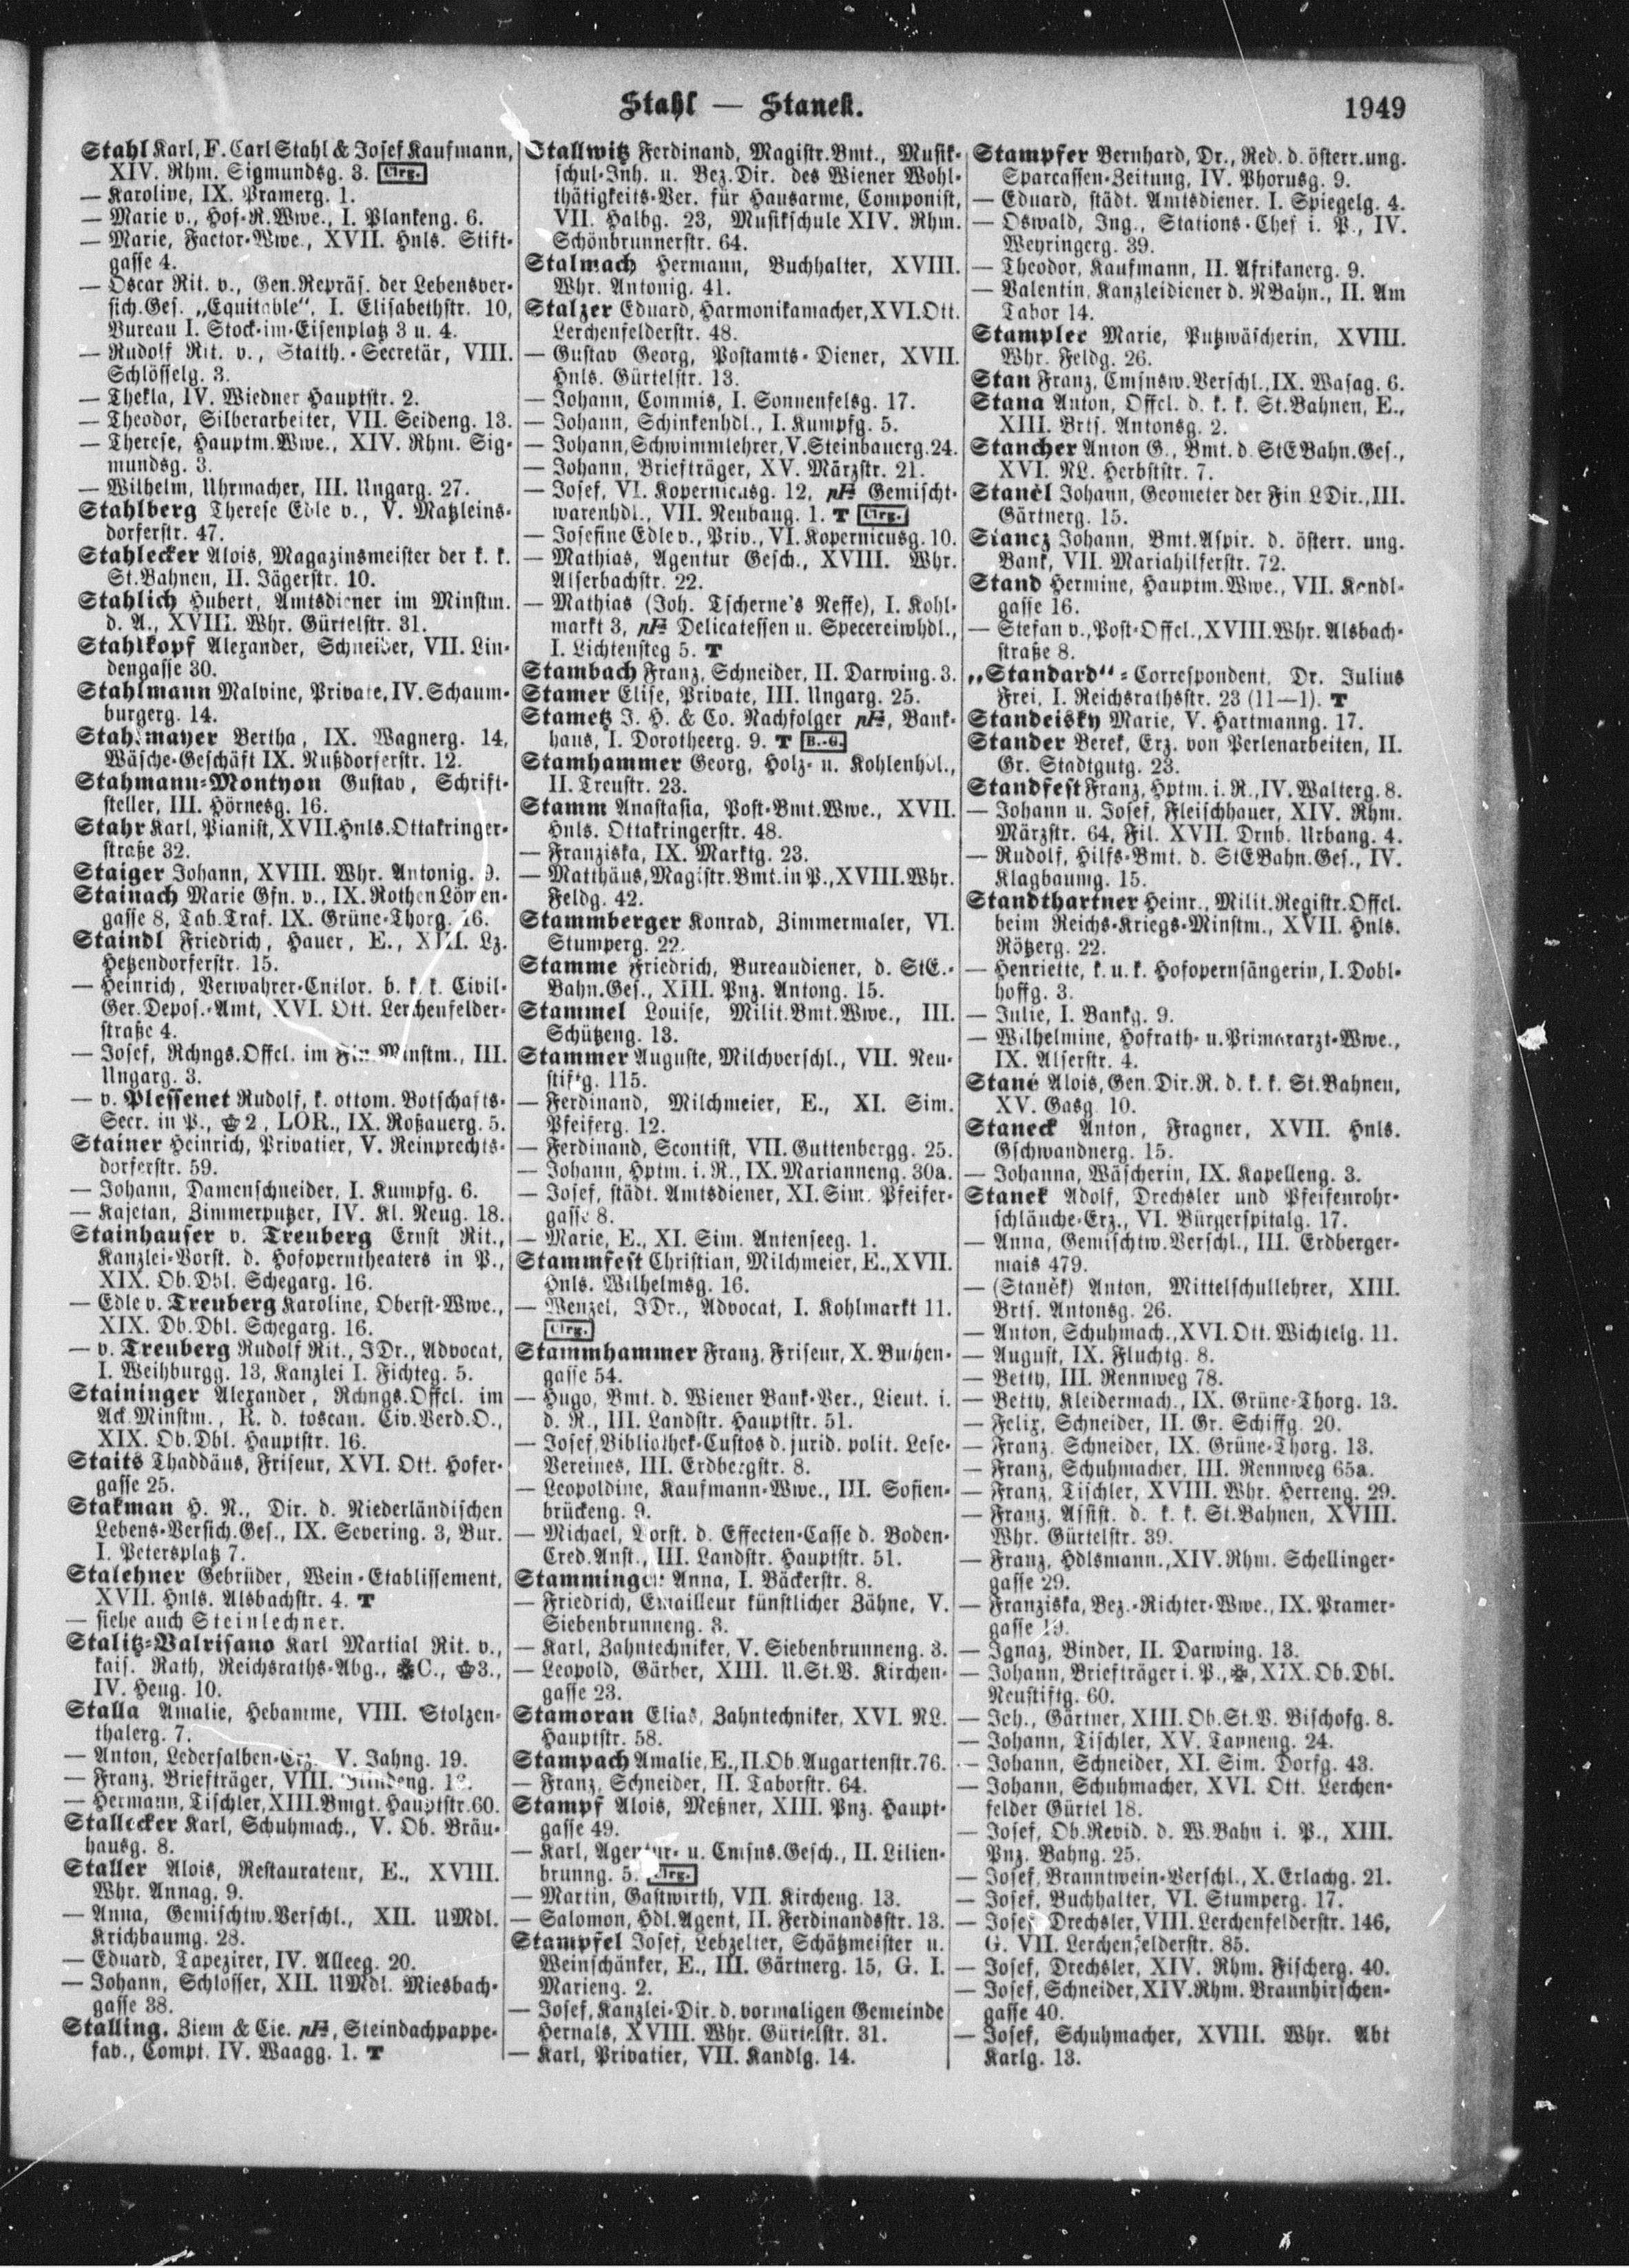 Stahl — Stanek.
1949
Stahl Karl, F. Carl Stahl & Josef Kaufmann,
XIV. Rhm. Sigmundsg. 3. Clrg.
— Karoline, IX. Pramerg. 1.
— Marie v., Hof-R.Wwe., I. Plankeng. 6.
— Marie, Factor-Wwe., XVII. Hnls. Stift-
gasse 4.
— Oscar Rit. v., Gen.Repräs. der Lebensver-
sich.Ges. „Equitable“, I. Elisabethstr. 10,
Bureau I. Stock-im-Eisenplatz 3 u. 4.
— Rudolf Rit. v., Statth.-Secretär, VIII.
Schlösselg. 3.
— Thekla, IV. Wiedner Hauptstr. 2.
— Theodor, Silberarbeiter, VII. Seideng. 13.
— Therese, Hauptm.Wwe., XIV. Rhm. Sig-
mundsg. 3.
— Wilhelm, Uhrmacher, III. Ungarg. 27.
Stahlberg Therese Edle v., V. Matzleins-
dorferstr. 47.
Stahlecker Alois, Magazinsmeister der k. k.
St.Bahnen, II. Jägerstr. 10.
Stahlich Hubert, Amtsdiener im Minstm.
d. A., XVIII. Whr. Gürtelstr. 31.
Stahlkopf Alexander, Schneider, VII. Lin-
dengasse 30.
Stahlmann Malvine, Private, IV. Schaum-
burgerg. 14.
Stahlmayer Bertha, IX. Wagnerg. 14,
Wäsche-Geschäft IX. Nußdorferstr. 12.
Stahmann-Montyon Gustav, Schrift-
steller, III. Hörnesg. 16.
Stahr Karl, Pianist, XVII. Hnls. Ottakringer-
straße 32.
Staiger Johann, XVIII. Whr. Antonig. 9.
Stainach Marie Gfn. v., IX. Rothen Löwen-
gasse 8, Tab.Traf. IX. Grüne-Thorg. 16.
Staindl Friedrich, Hauer, E., XIII. Lz.
Hetzendorferstr. 15.
— Heinrich, Verwahrer-Cntlor. b. k. k. Civil-
Ger.Depos.-Amt, XVI. Ott. Lerchenfelder-
straße 4.
— Josef, Rchngs.Offcl. im Fin Minstm., III.
Ungarg. 3.
— v. Plessenet Rudolf, k. ottom. Botschafts-
Secr. in P., 2, LOR., IX. Roßauerg. 5.
Stainer Heinrich, Privatier, V. Reinprechts-
dorferstr. 59.
— Johann, Damenschneider, I. Kumpfg. 6.
— Kajetan, Zimmerputzer, IV. Kl. Neug. 18.
Stainhauser v. Treuberg Ernst Rit.,
Kanzlei-Vorst. d. Hofoperntheaters in P.,
XIX. Ob.Dbl. Schegarg. 16.
— Edle v. Treuberg Karoline, Oberst-Wwe.,
XIX. Ob.Dbl. Schegarg. 16.
— v. Treuberg Rudolf Rit., JDr., Advocat,
I. Weihburgg. 13, Kanzlei I. Fichteg. 5.
Staininger Alexander, Rchngs.Offcl. im
Ack.Minstm., R. d. toscan. Civ.Verd.O.,
XIX. Ob.Dbl. Hauptstr. 16.
Staits Thaddäus, Friseur, XVI. Ott. Hofer-
gasse 25.
Stakman H. N., Dir. d. Niederländischen
Lebens-Versich.Ges., IX. Severing. 3, Bur.
I. Petersplatz 7.
Stalehner Gebrüder, Wein-Etablissement,
XVII. Hnls. Alsbachstr. 4. T
— siehe auch Steinlechner.
Stalitz-Valrisano Karl Martial Rit. v.,
kais. Rath, Reichsraths-Abg., C., 3.,
IV. Heug. 10.
Stalla Amalie, Hebamme, VIII. Stolzen-
thalerg. 7.
— Anton, Ledersalben-Erz. V. Jahng. 19.
— Franz, Briefträger, VIII. Blindeng.
— Hermann, Tischler, XIII. Bmgt. Hauptstr. 60.
Stallecker Karl, Schuhmach., V. Ob. Bräu-
hausg. 8.
Staller Alois, Restaurateur, E., XVIII.
Whr. Annag. 9.
— Anna, Gemischtw.Verschl., XII. UMdl.
Krichbaumg. 28.
— Eduard, Tapezirer, IV. Alleeg. 20.
— Johann, Schlosser, XII. UMdl. Miesbach-
gasse 38.
Stalling, Ziem & Cie. pF, Steindachpappe-
fav., Compt. IV. Waagg. 1. T
Stallwitz Ferdinand, Magistr.Bmt., Musik-
schul-Inh. u. Bez.Dir. des Wiener Wohl-
thätigkeits-Ver. für Hausarme, Componist,
VII. Halbg. 23, Musikschule XIV. Rhm.
Schönbrunnerstr. 64.
Stalmach Hermann, Buchhalter, XVIII.
Whr. Antonig. 41.
Stalzer Eduard, Harmonikamacher, XVI. Ott.
Lerchenfelderstr. 48.
— Gustav Georg, Postamts-Diener, XVII.
Hnls. Gürtelstr. 13.
— Johann, Commis, I. Sonnenfelsg. 17.
— Johann, Schinkenhdl., I. Kumpfg. 5.
— Johann, Schwimmlehrer, V. Steinbauerg. 24.
— Johann, Briefträger, XV. Märzstr. 21.
— Josef, VI. Kopernicusg. 12, pF Gemischt-
warenhdl., VII. Neubaug. 1. T Clrg.
— Josefine Edle v., Priv., VI. Kopernicusg. 10.
— Mathias, Agentur Gesch., XVIII. Whr.
Alserbachstr. 22.
— Mathias (Joh. Tscherne's Neffe), I. Kohl-
markt 3, pF Delicatessen u. Specereiwhdl.,
I. Lichtensteg 5. T
Stambach Franz, Schneider, II. Darwing. 3.
Stamer Elise, Private, III. Ungarg. 25.
Stametz J. H. & Co. Nachfolger pF, Bank-
haus, I. Dorotheerg. 9. T B.-G.
Stamhammer Georg, Holz- u. Kohlenhdl.,
II. Treustr. 23.
Stamm Anastasia, Post-Bmt.Wwe., XVII.
Hnls. Ottakringerstr. 48.
— Franziska, IX. Marktg. 23.
— Matthäus, Magistr.Bmt. in P., XVIII. Whr.
Feldg. 42.
Stammberger Konrad, Zimmermaler, VI.
Stumperg. 22.
Stamme Friedrich, Bureaudiener, d. StE.-
Bahn.Ges., XIII. Pnz. Antong. 15.
Stammel Louise, Milit.Bmt.Wwe., III.
Schützeng. 13.
Stammer Auguste, Milchverschl., VII. Neu-
stiftg. 115.
— Ferdinand, Milchmeier, E., XI. Sim.
Pfeiferg. 12.
— Ferdinand, Scontist, VII. Guttenbergg. 25.
— Johann, Hptm. i. R., IX. Marianneng. 30a.
— Josef, städt. Amtsdiener, XI. Sim. Pfeifer-
gasse 8.
— Marie, E., XI. Sim. Antenseeg. 1.
Stammfest Christian, Milchmeier, E., XVII.
Hnls. Wilhelmsg. 16.
— Wenzel, JDr., Advocat, I. Kohlmarkt 11.
Clrg.
Stammhammer Franz, Friseur, X. Buchen-
gasse 54.
— Hugo, Bmt. d. Wiener Bank-Ver., Lieut. i.
d. R., III. Landstr. Hauptstr. 51.
— Josef, Bibliothek-Custos d. jurid. polit. Lese-
Vereines, III. Erdbergstr. 8.
— Leopoldine, Kaufmann-Wwe., III. Sofien-
brückeng. 9.
— Michael, Vorst. d. Effecten-Casse d. Boden-
Cred.Anst., III. Landstr. Hauptstr. 51.
Stamminger Anna, I. Bäckerstr. 8.
— Friedrich, Emailleur künstlicher Zähne, V.
Siebenbrunneng. 3.
— Karl, Zahntechniker, V. Siebenbrunneng. 3.
— Leopold, Gärber, XIII. U.St.V. Kirchen-
gasse 23.
Stamoran Elias, Zahntechniker, XVI. NL.
Hauptstr. 58.
Stampach Amalie, E., II. Ob. Augartenstr. 76.
— Franz, Schneider, II. Taborstr. 64.
Stampf Alois, Meßner, XIII. Pnz. Haupt-
gasse 49.
— Karl, Agentur- u. Cmsns.Gesch., II. Lilien-
brunng. 5. Clrg.
— Martin, Gastwirth, VII. Kircheng. 13.
— Salomon, Hdl.Agent, II. Ferdinandsstr. 13.
Stampfel Josef, Lebzelter, Schätzmeister u.
Weinschänker, E., III. Gärtnerg. 15, G. I.
Marieng. 2.
— Josef, Kanzlei-Dir. d. vormaligen Gemeinde
Hernals, XVIII. Whr. Gürtelstr. 31.
— Karl, Privatier, VII. Kandlg. 14.
Stampfer Bernhard, Dr., Red. d. österr.ung.
Sparcassen-Zeitung, IV. Phorusg. 9.
— Eduard, städt. Amtsdiener. I. Spiegelg. 4.
— Oswald, Ing., Stations-Chef i. P., IV.
Weyringerg. 39.
— Theodor, Kaufmann, II. Afrikanerg. 9.
— Valentin, Kanzleidiener d. NBahn., II. Am
Tabor 14.
Stampler Marie, Putzwäscherin, XVIII.
Whr. Feldg. 26.
Stan Franz, Cmsnsw.Verschl., IX. Wasag. 6.
Stana Anton, Offcl. d. k. k. St.Bahnen, E.,
XIII. Brts. Antonsg. 2.
Stancher Anton G., Bmt. d. StEBahn.Ges.,
XVI. NL. Herbststr. 7.
Stančl Johann, Geometer der Fin LDir., III.
Gärtnerg. 15.
Stancz Johann, Bmt.Aspir. d. österr. ung.
Bank, VII. Mariahilferstr. 72.
Stand Hermine, Hauptm.Wwe., VII. Kandl-
gasse 16.
— Stefan v., Post-Offcl., XVIII. Whr. Alsbach-
straße 8.
„Standard“-Correspondent, Dr. Julius
Frei, I. Reichsrathsstr. 23 (11—1). T
Standeisky Marie, V. Hartmanng. 17.
Stander Berek, Erz. von Perlenarbeiten, II.
Gr. Stadtgutg. 23.
Standfest Franz, Hptm. i. R., IV. Walterg. 8.
— Johann u. Josef, Fleischhauer, XIV. Rhm.
Märzstr. 64, Fil. XVII. Drnb. Urbang. 4.
— Rudolf, Hilfs-Bmt. d. StEBahn.Ges., IV.
Klagbaumg. 15.
Standthartner Heinr., Milit.Registr.Offcl.
beim Reichs-Kriegs-Minstm., XVII. Hnls.
Rötzerg. 22.
— Henriette, k. u. k. Hofopernsängerin, I. Dobl-
hoffg. 3.
— Julie, I. Bankg. 9.
— Wilhelmine, Hofrath- u. Primararzt-Wwe.,
IX. Alserstr. 4.
Stané Alois, Gen.Dir.R. d. k. k. St.Bahnen,
XV. Gasg. 10.
Staneck Anton, Fragner, XVII. Hnls.
Gschwandnerg. 15.
— Johanna, Wäscherin, IX. Kapelleng. 3.
Stanek Adolf, Drechsler und Pfeifenrohr-
schläuche-Erz., VI. Bürgerspitalg. 17.
— Anna, Gemischtw.Verschl., III. Erdberger-
mais 479.
— (Staněk) Anton, Mittelschullehrer, XIII.
Brts. Antonsg. 26.
— Anton, Schuhmach., XVI. Ott. Wichtelg. 11.
— August, IX. Fluchtg. 8.
— Betty, III. Rennweg 78.
— Betty, Kleidermach., IX. Grüne-Thorg. 13.
— Felix, Schneider, II. Gr. Schiffg. 20.
— Franz, Schneider, IX. Grüne-Thorg. 13.
— Franz, Schuhmacher, III. Rennweg 65a.
— Franz, Tischler, XVIII. Whr. Herreng. 29.
— Franz, Assist. d. k. k. St.Bahnen, XVIII.
Whr. Gürtelstr. 39.
— Franz, Hdlsmann., XIV. Rhm. Schellinger-
gasse 29.
— Franziska, Bez.-Richter-Wwe., IX. Pramer-
gasse 19.
— Ignaz, Binder, II. Darwing. 13.
— Johann, Briefträger i. P., XIX. Ob.Dbl.
Neustiftg. 60.
— Joh., Gärtner, XIII. Ob.St.V. Bischofg. 8.
— Johann, Tischler, XV. Tanneng. 24.
— Johann, Schneider, XI. Sim. Dorfg. 43.
— Johann, Schuhmacher, XVI. Ott. Lerchen-
felder Gürtel 18.
— Josef, Ob.Revid. d. W.Bahn i. P., XIII.
Pnz. Bahng. 25.
— Josef, Branntwein-Verschl., X. Erlachg. 21.
— Josef, Buchhalter, VI. Stumperg. 17.
— Josef, Drechsler, VIII. Lerchenfelderstr. 146,
G. VII. Lerchenfelderstr. 85.
— Josef, Drechsler, XIV. Rhm. Fischerg. 40.
— Josef, Schneider, XIV. Rhm. Braunhirschen-
gasse 40.
— Josef, Schuhmacher, XVIII. Whr. Abt
Karlg. 13.